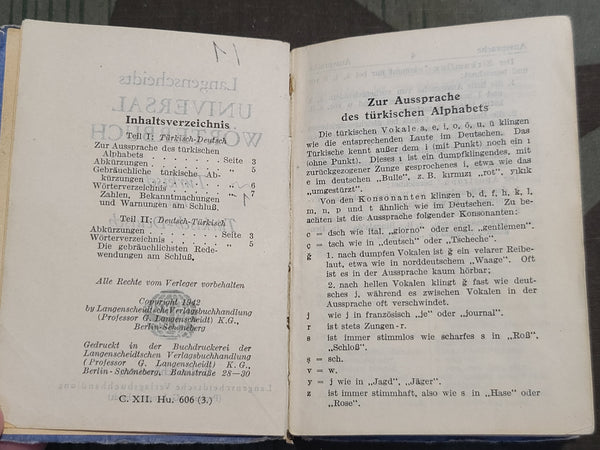 11
Inhaltsverzeichnis
Teil I: Türkisch-Deutsch
Zur Aussprache des türkischen
Alphabets . . . . . . . . Seite 3
Abkürzungen . . . . . . . „ 5
Gebräuchliche türkische Ab-
kürzungen . . . . . . . . „ 6
Wörterverzeichnis . . . . . „ 7
Zahlen, Bekanntmachungen
und Warnungen am Schluß.
Teil II: Deutsch-Türkisch
Abkürzungen . . . . . . Seite 3
Wörterverzeichnis . . . . . „ 5
Die gebräuchlichsten Rede-
wendungen am Schluß.
Alle Rechte vom Verleger vorbehalten
Copyright 1942
by Langenscheidtsche Verlagsbuchhandlung
(Professor G. Langenscheidt) K.G.,
Berlin-Schöneberg
Gedruckt in der Buchdruckerei der
Langenscheidtschen Verlagsbuchhandlung
(Professor G. Langenscheidt) K.G.,
Berlin-Schöneberg, Bahnstraße 28—30
C. XII. Hu. 606 (3.)
Zur Aussprache
des türkischen Alphabets
Die türkischen Vokale a, e, i, o, ö, u, ü klingen
wie die entsprechenden Laute im Deutschen. Das
Türkische kennt außer dem i (mit Punkt) noch ein ı
(ohne Punkt). Dieses ı ist ein dumpfklingendes, mit
zurückgezogener Zunge gesprochenes i, etwa wie das
e im deutschen „Bulle", z. B. kırmızı „rot", yıkık
„umgestürzt".
Von den Konsonanten klingen b, d, f, h, k, l,
m, n, p und t ähnlich wie im Deutschen. Zu be-
achten ist die Aussprache folgender Konsonanten:
c = dsch wie ital. „giorno" oder engl. „gentlemen".
ç = tsch wie in „deutsch" oder „Tscheche".
ğ 1. nach dumpfen Vokalen ist ğ ein velarer Reibe-
laut, etwa wie in norddeutschem „Waage". Oft
ist es in der Aussprache kaum hörbar;
2. nach hellen Vokalen klingt ğ fast wie deut-
sches j, während es zwischen Vokalen in der
Aussprache oft verschwindet.
j wie j in französisch „je" oder „journal".
r ist stets Zungen-r.
s ist immer stimmlos wie scharfes s in „Roß",
„Schloß".
ş = sch.
v = w.
y = j wie in „Jagd", „Jäger".
z ist immer stimmhaft, also wie s in „Hase" oder
„Rose".